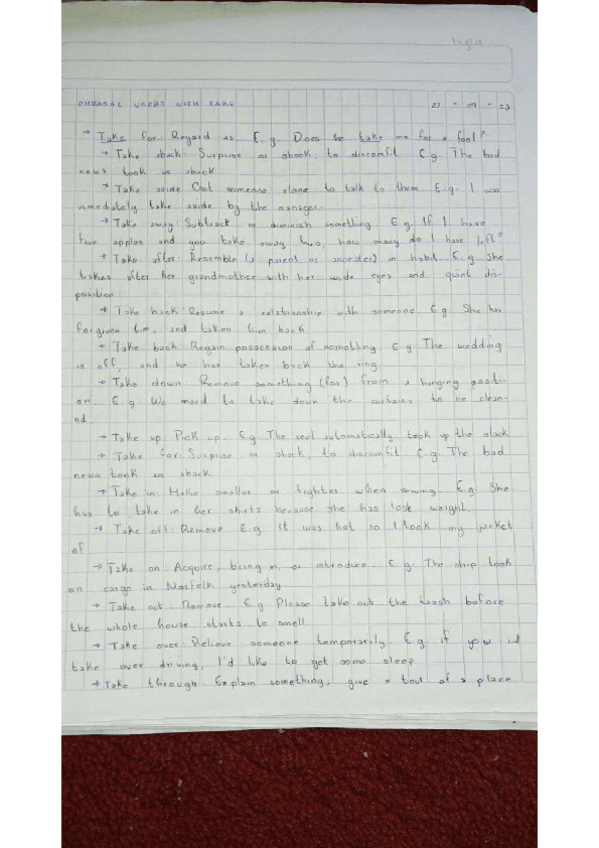 Inglés
PHRASAL VERBS WITH TAKE 27 - 09 - 23
→ Take for: Regard as. E.g. Does he take me for a fool?
→ Take aback: Surprise or shock; to discomfit. E.g. The bad
news took us aback
→ Take aside: Get someone alone to talk to them. E.g. I was
immediately take aside by the manager.
→ Take away: Subtrack or diminish something. E.g. If I have
five apples and you take away two, how many do I have left?
→ Take after: Resemble (a parent or ancester) in habit. E.g. She
takes after her grandmother with her wide eyes and quint dis-
position.
→ Take back: Resume a relationship with someone. E.g. She has
forgiven him, and taken him back.
→ Take back: Regain possession of something. E.g. The wedding
is off, and he has taken back the ring
→ Take down: Remove something (for) from a hanging positi-
on. E.g. We need to take down the curtains to be clean-
ed.
→ Take up: Pick up. E.g. The seal automatically took up the slack
→ Take for: Surprise or shock; to discomfit. E.g. The bad
news took us aback.
→ Take in: Make smaller or tighter when sewing. E.g. She
has to take in her skirts because she has lost weight.
→ Take off: Remove. E.g. It was hot so I took my jacket
of
→ Take on: Acquire, bring in, or introduce. E.g. The ship took
on cargo in Norfolk yesterday
→ Take out: Remove. E.g. Please take out the trash before
the whole house starts to smell.
→ Take over: Relieve someone temporarily. E.g. if you
take over driving, I'd like to get some sleep
→ Take through: Explain something; give a tour of a place.